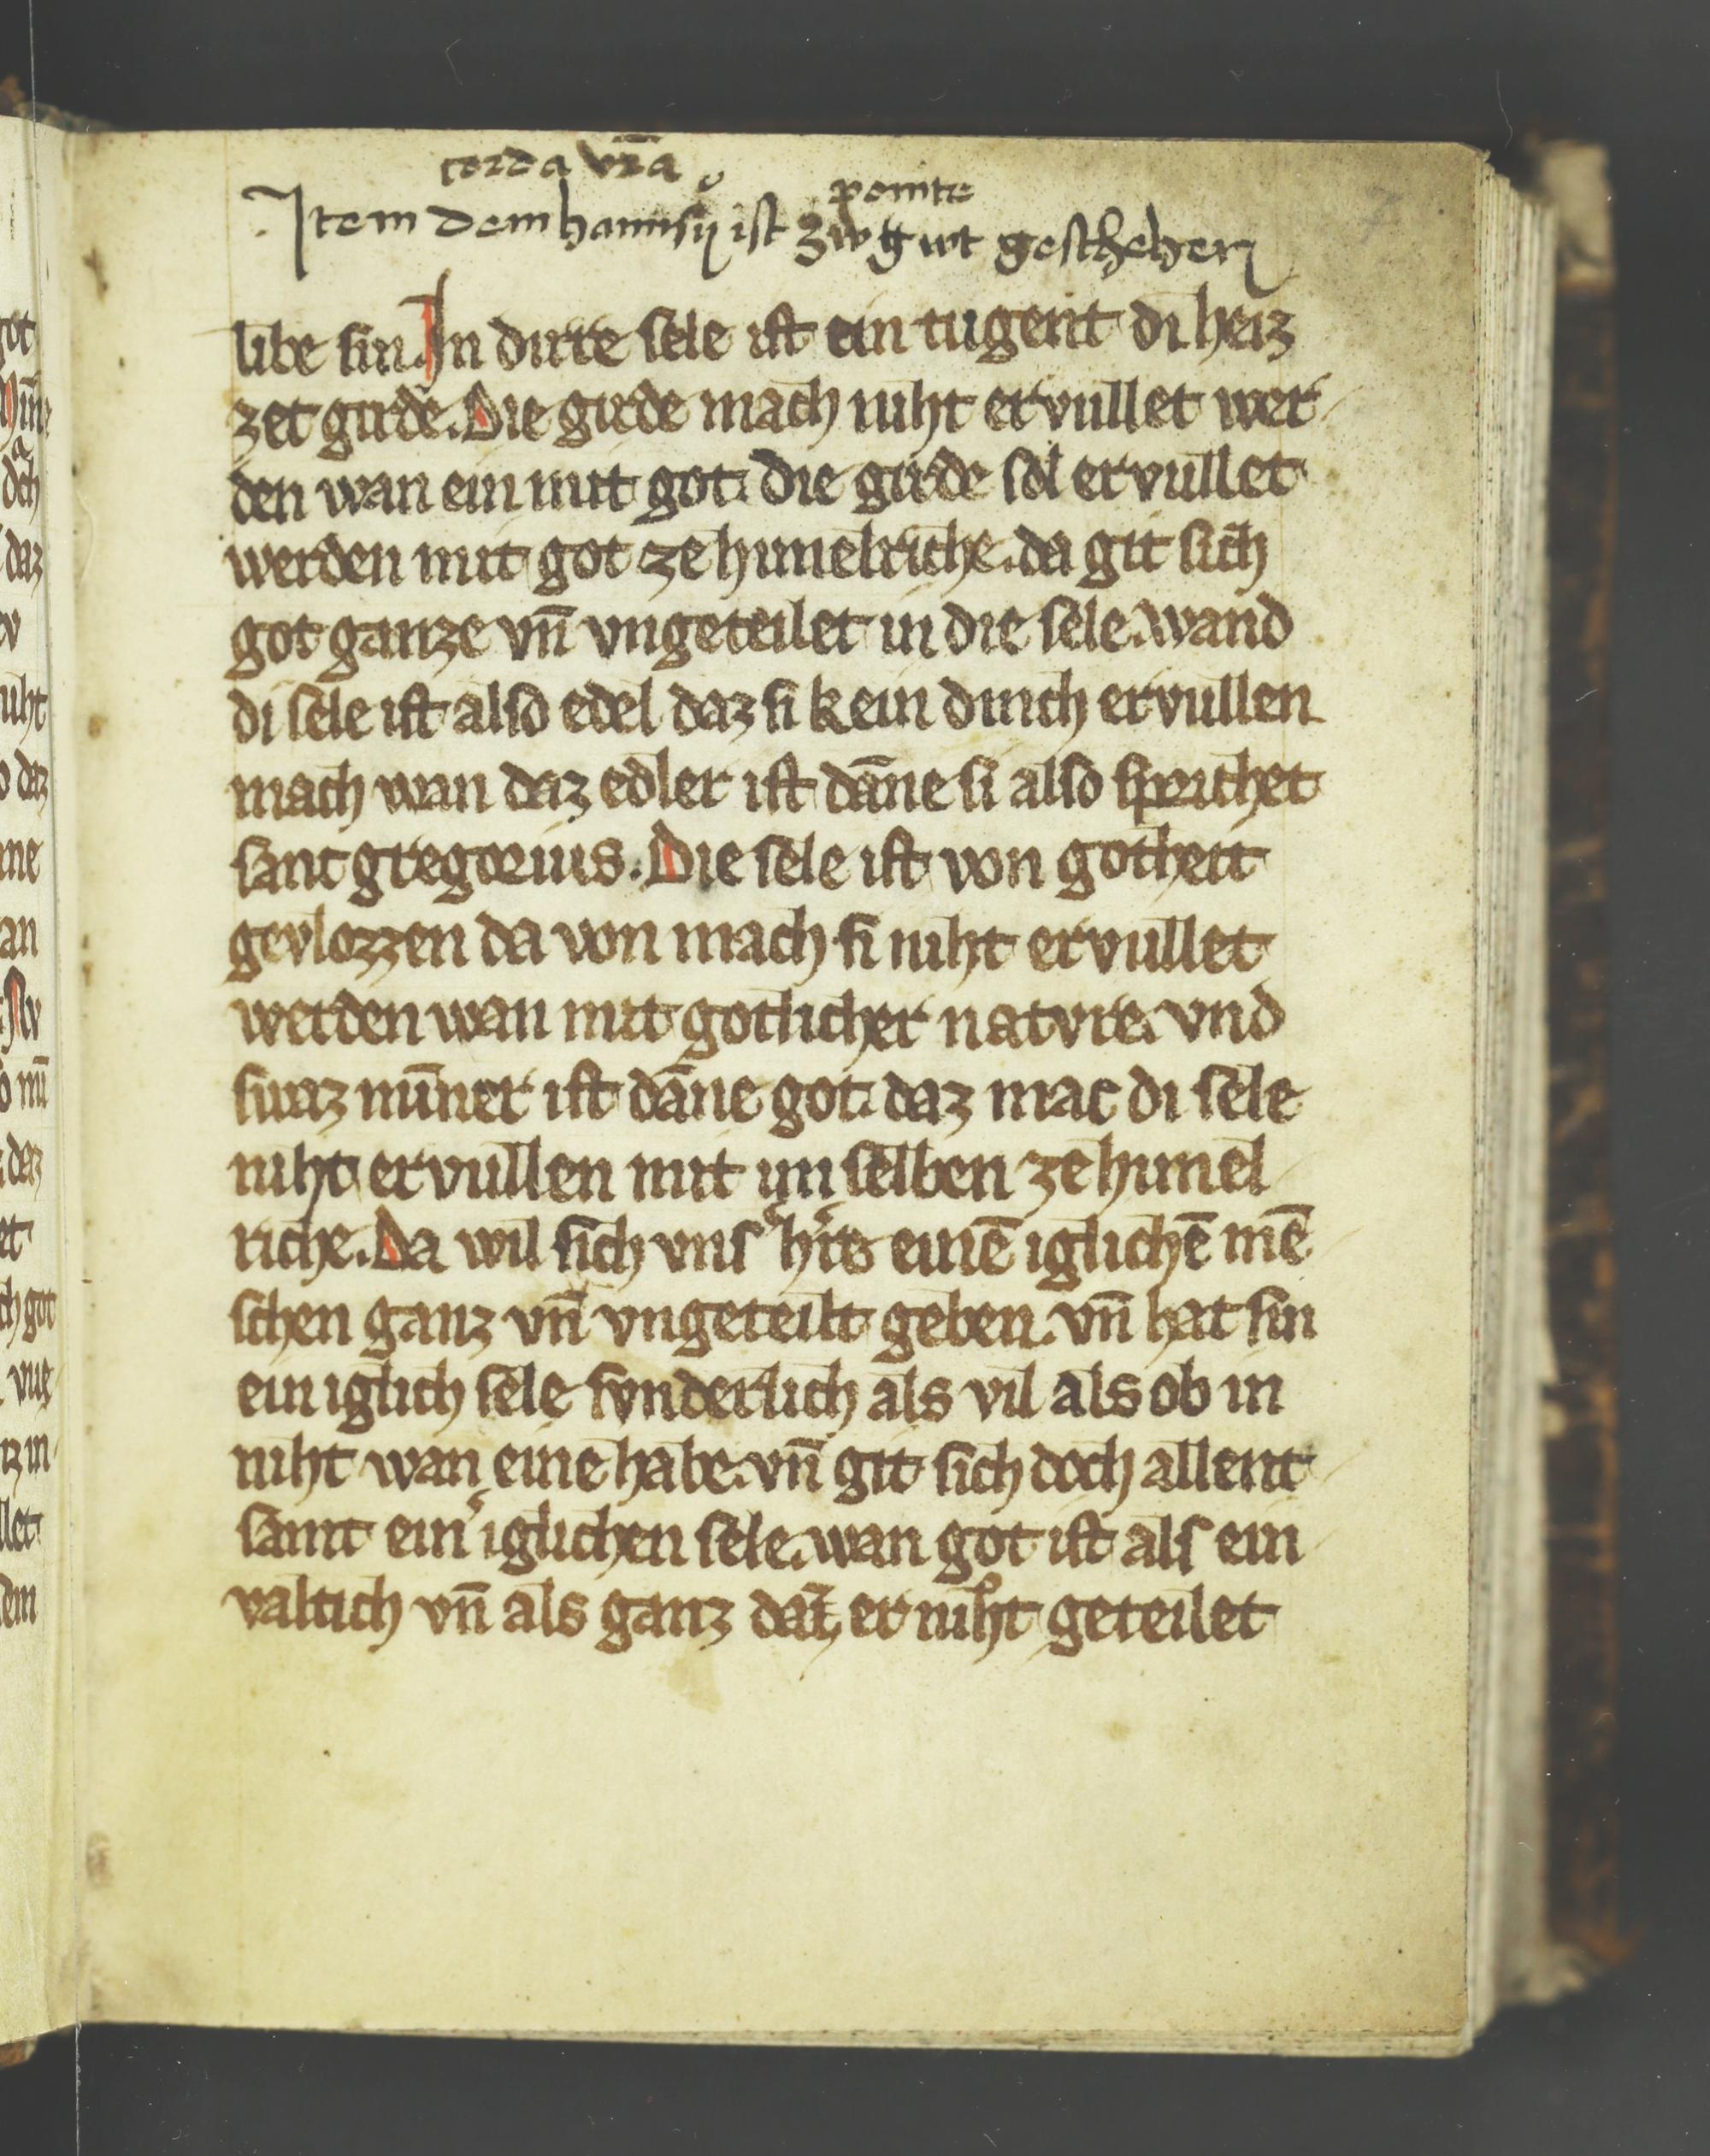 corda vr̄a
ponite
Item dem hannsy ist zw gut geschehen
7
libe sin. In dirre sele ist ein tugent di heiz
zet girde. Die girde mach niht ervullet wer
den wan ein mit got. die girde sol ervullet
werden mit got ze himelriche. da git sich
got ganze vn̄ vngeteilet in die sele. wand
di sele ist also edel daz si kein dinch ervullen
mach wan daz edler ist dāne si also sprichet
sant gregorius. Die sele ist von gotheit
gevlozzen da von mach si niht ervullet
werden wan mit gotlicher natvre. vnd
swaz mīner ist dāne got. daz mac di sele
niht ervullen mit im selben ze himel
riche. Da wil sich vnser h're einē iglichē mē
schen ganz vn̄ vngeteilt geben. vn̄ hat sin
ein iglich sele svnderlich als vil als ob in
niht wan eine habe. vn̄ git sich doch allent
samt ein' iglichen sele. wan got ist als ein
valtich vn̄ als ganz daz er niht geteilet